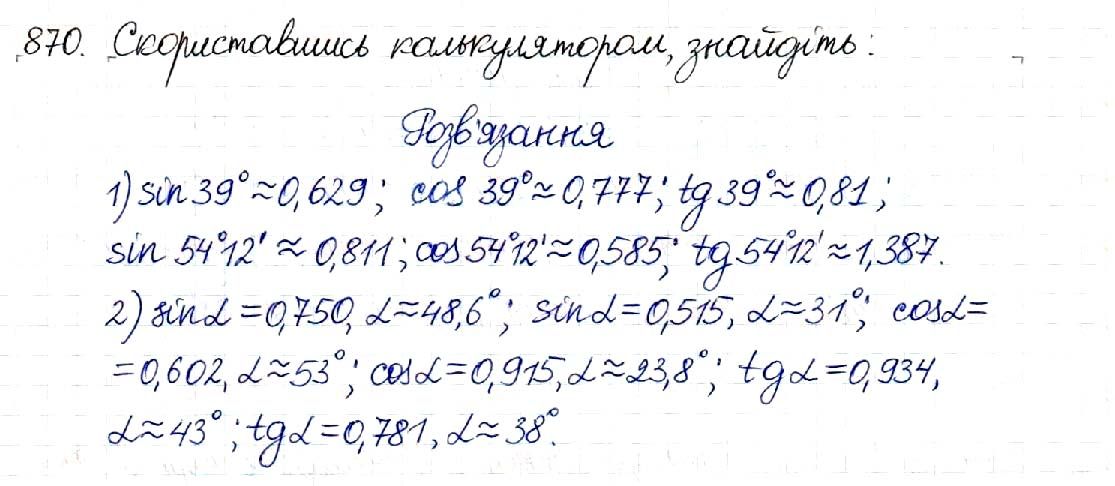 870. Скориставшись калькулятором, знайдіть:
Розв'язання
1) sin 39° ≈ 0,629; cos 39° ≈ 0,777; tg 39° ≈ 0,81;
sin 54°12' ≈ 0,811; cos 54°12' ≈ 0,585; tg 54°12' ≈ 1,387.
2) sin α = 0,750, α ≈ 48,6°; sin α = 0,515, α ≈ 31°; cos α =
= 0,602, α ≈ 53°; cos α = 0,915, α ≈ 23,8°; tg α = 0,934,
α ≈ 43°; tg α = 0,781, α ≈ 38°.